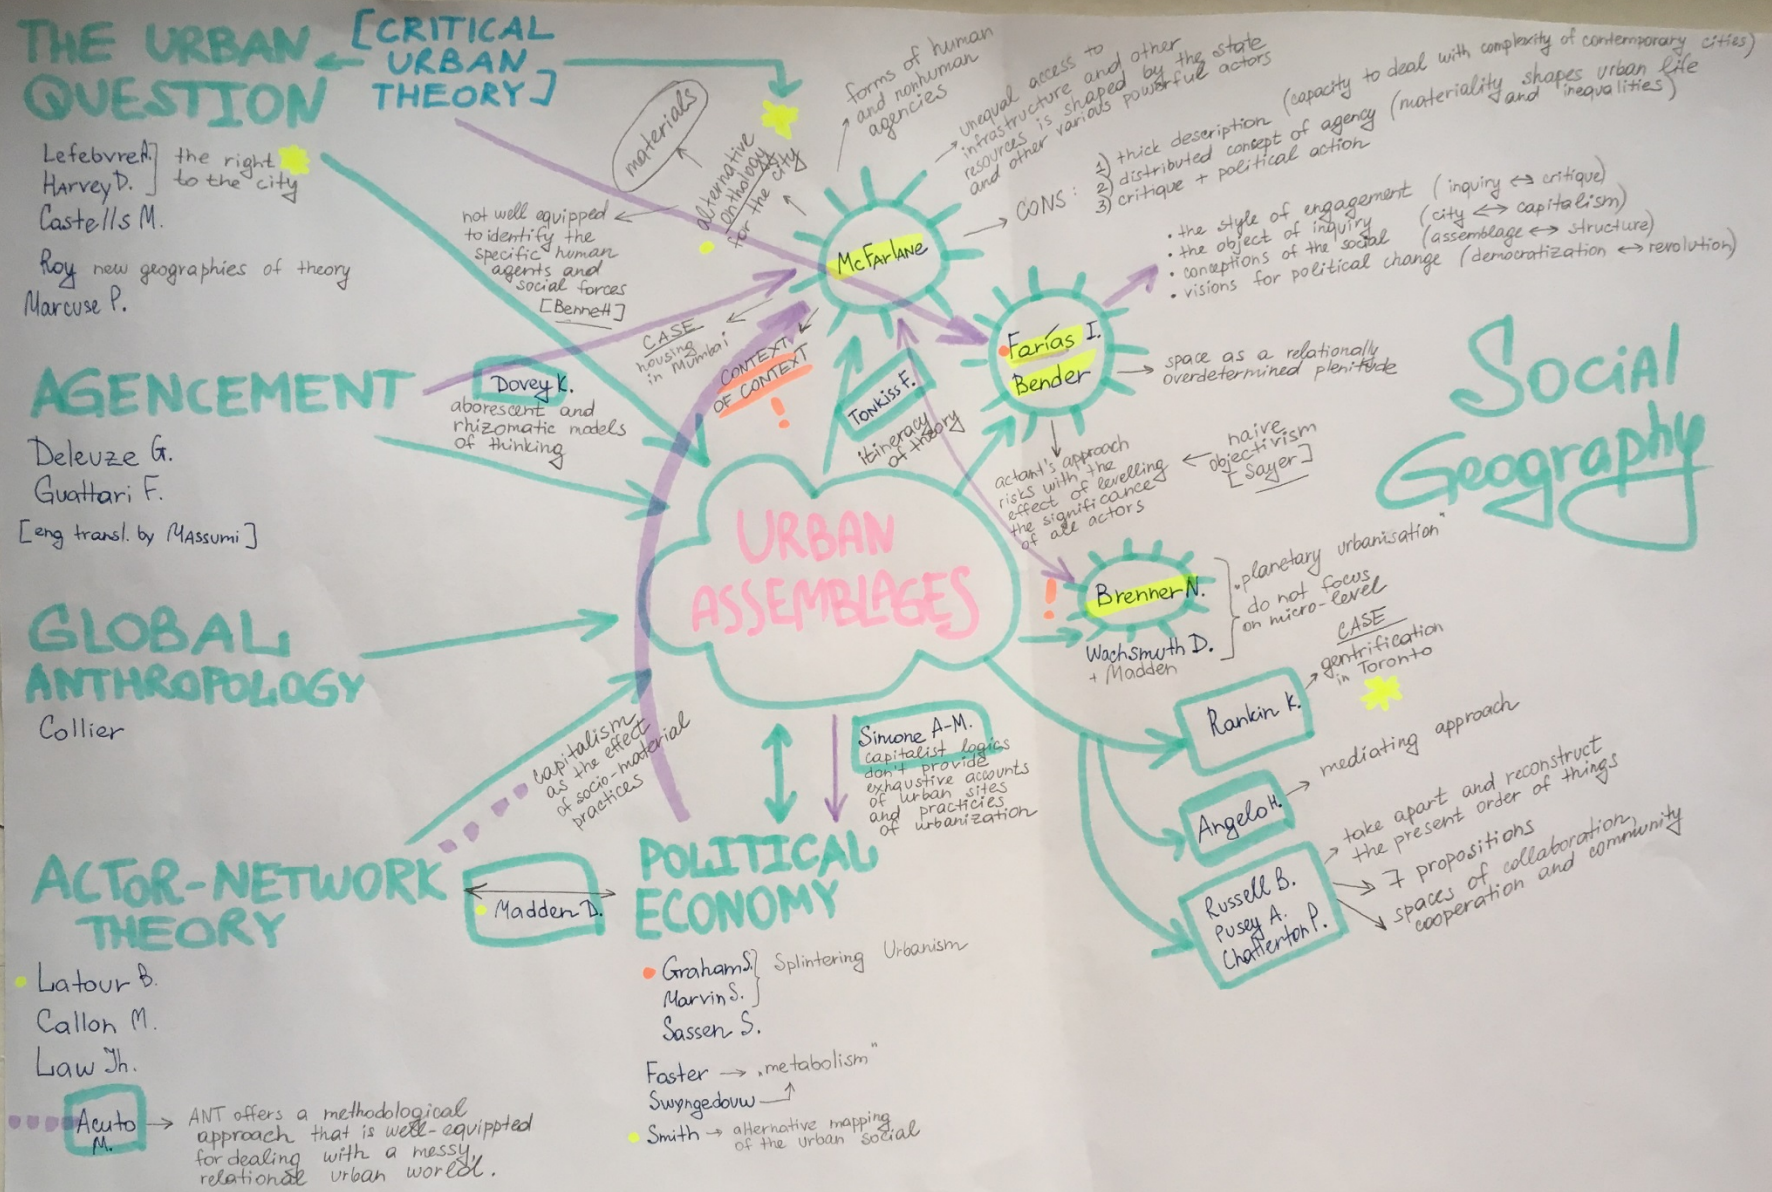 THE URBAN
QUESTION
[CRITICAL
URBAN
THEORY]
Lefebvre A.]
Harvey D.
the right
to the city
Castells M.
Roy new geographies of theory
Marcuse P.
AGENCEMENT
Deleuze G.
Guattari F.
[eng transl. by Massumi]
Dovey K.
aborescent and
rhizomatic models
of thinking
GLOBAL
ANTHROPOLOGY
Collier
ACTOR-NETWORK
THEORY
Latour B.
Callon M.
Law Jh.
Acuto
M.
ANT offers a methodological
approach that is well-equippted
for dealing with a messy,
relational urban world.
capitalism
as the effect
of socio-material
practices
Madden D.
POLITICAL
ECONOMY
Graham S.
Marvin S.
Splintering Urbanism
Sassen S.
Faster → „metabolism"
Swyngedouw
Smith → alternative mapping
of the urban social
Simone A-M.
capitalist logics
don't provide
exhaustive accounts
of urban sites
and practicies
of urbanization
URBAN
ASSEMBLAGES
materials
alternative
onthology
for the city
not well equipped
to identify the
specific human
agents and
social forces
[Bennett]
CASE
housing
in Mumbai
CONTEXT
OF CONTEXT
!
McFarlane
forms of human
and nonhuman
agencies
unequal access to
infrastructure and other
resources is shaped by the state
and other various powerful actors
CONS:
1) thick description (capacity to deal with complexity of contemporary cities)
2) distributed concept of agency (materiality shapes urban life
and inequalities)
3) critique + political action
Tonkiss F.
itineracy
of theory
Farías I.
Bender
• the style of engagement (inquiry ↔ critique)
• the object of inquiry (city ↔ capitalism)
• conceptions of the social (assemblage ↔ structure)
• visions for political change (democratization ↔ revolution)
space as a relationally
overdetermined plenitude
actant's approach
risks with the
effect of levelling
the significance
of all actors
naive
objectivism
[Sayer]
Social
Geography
!
Brenner N.
Wachsmuth D.
+ Madden
„planetary urbanisation"
do not focus
on micro-level
Rankin K.
CASE
gentrification
in Toronto
Angelo H.
mediating approach
Russell B.
Pusey A.
Chatterton P.
take apart and reconstruct
the present order of things
7 propositions
spaces of collaboration,
cooperation and community